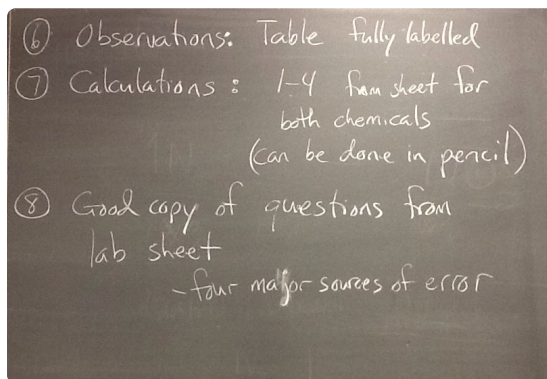 ⑥ Observations: Table fully labelled
⑦ Calculations: 1-4 from sheet for
both chemicals
(can be done in pencil)
⑧ Good copy of questions from
lab sheet
- four major sources of error